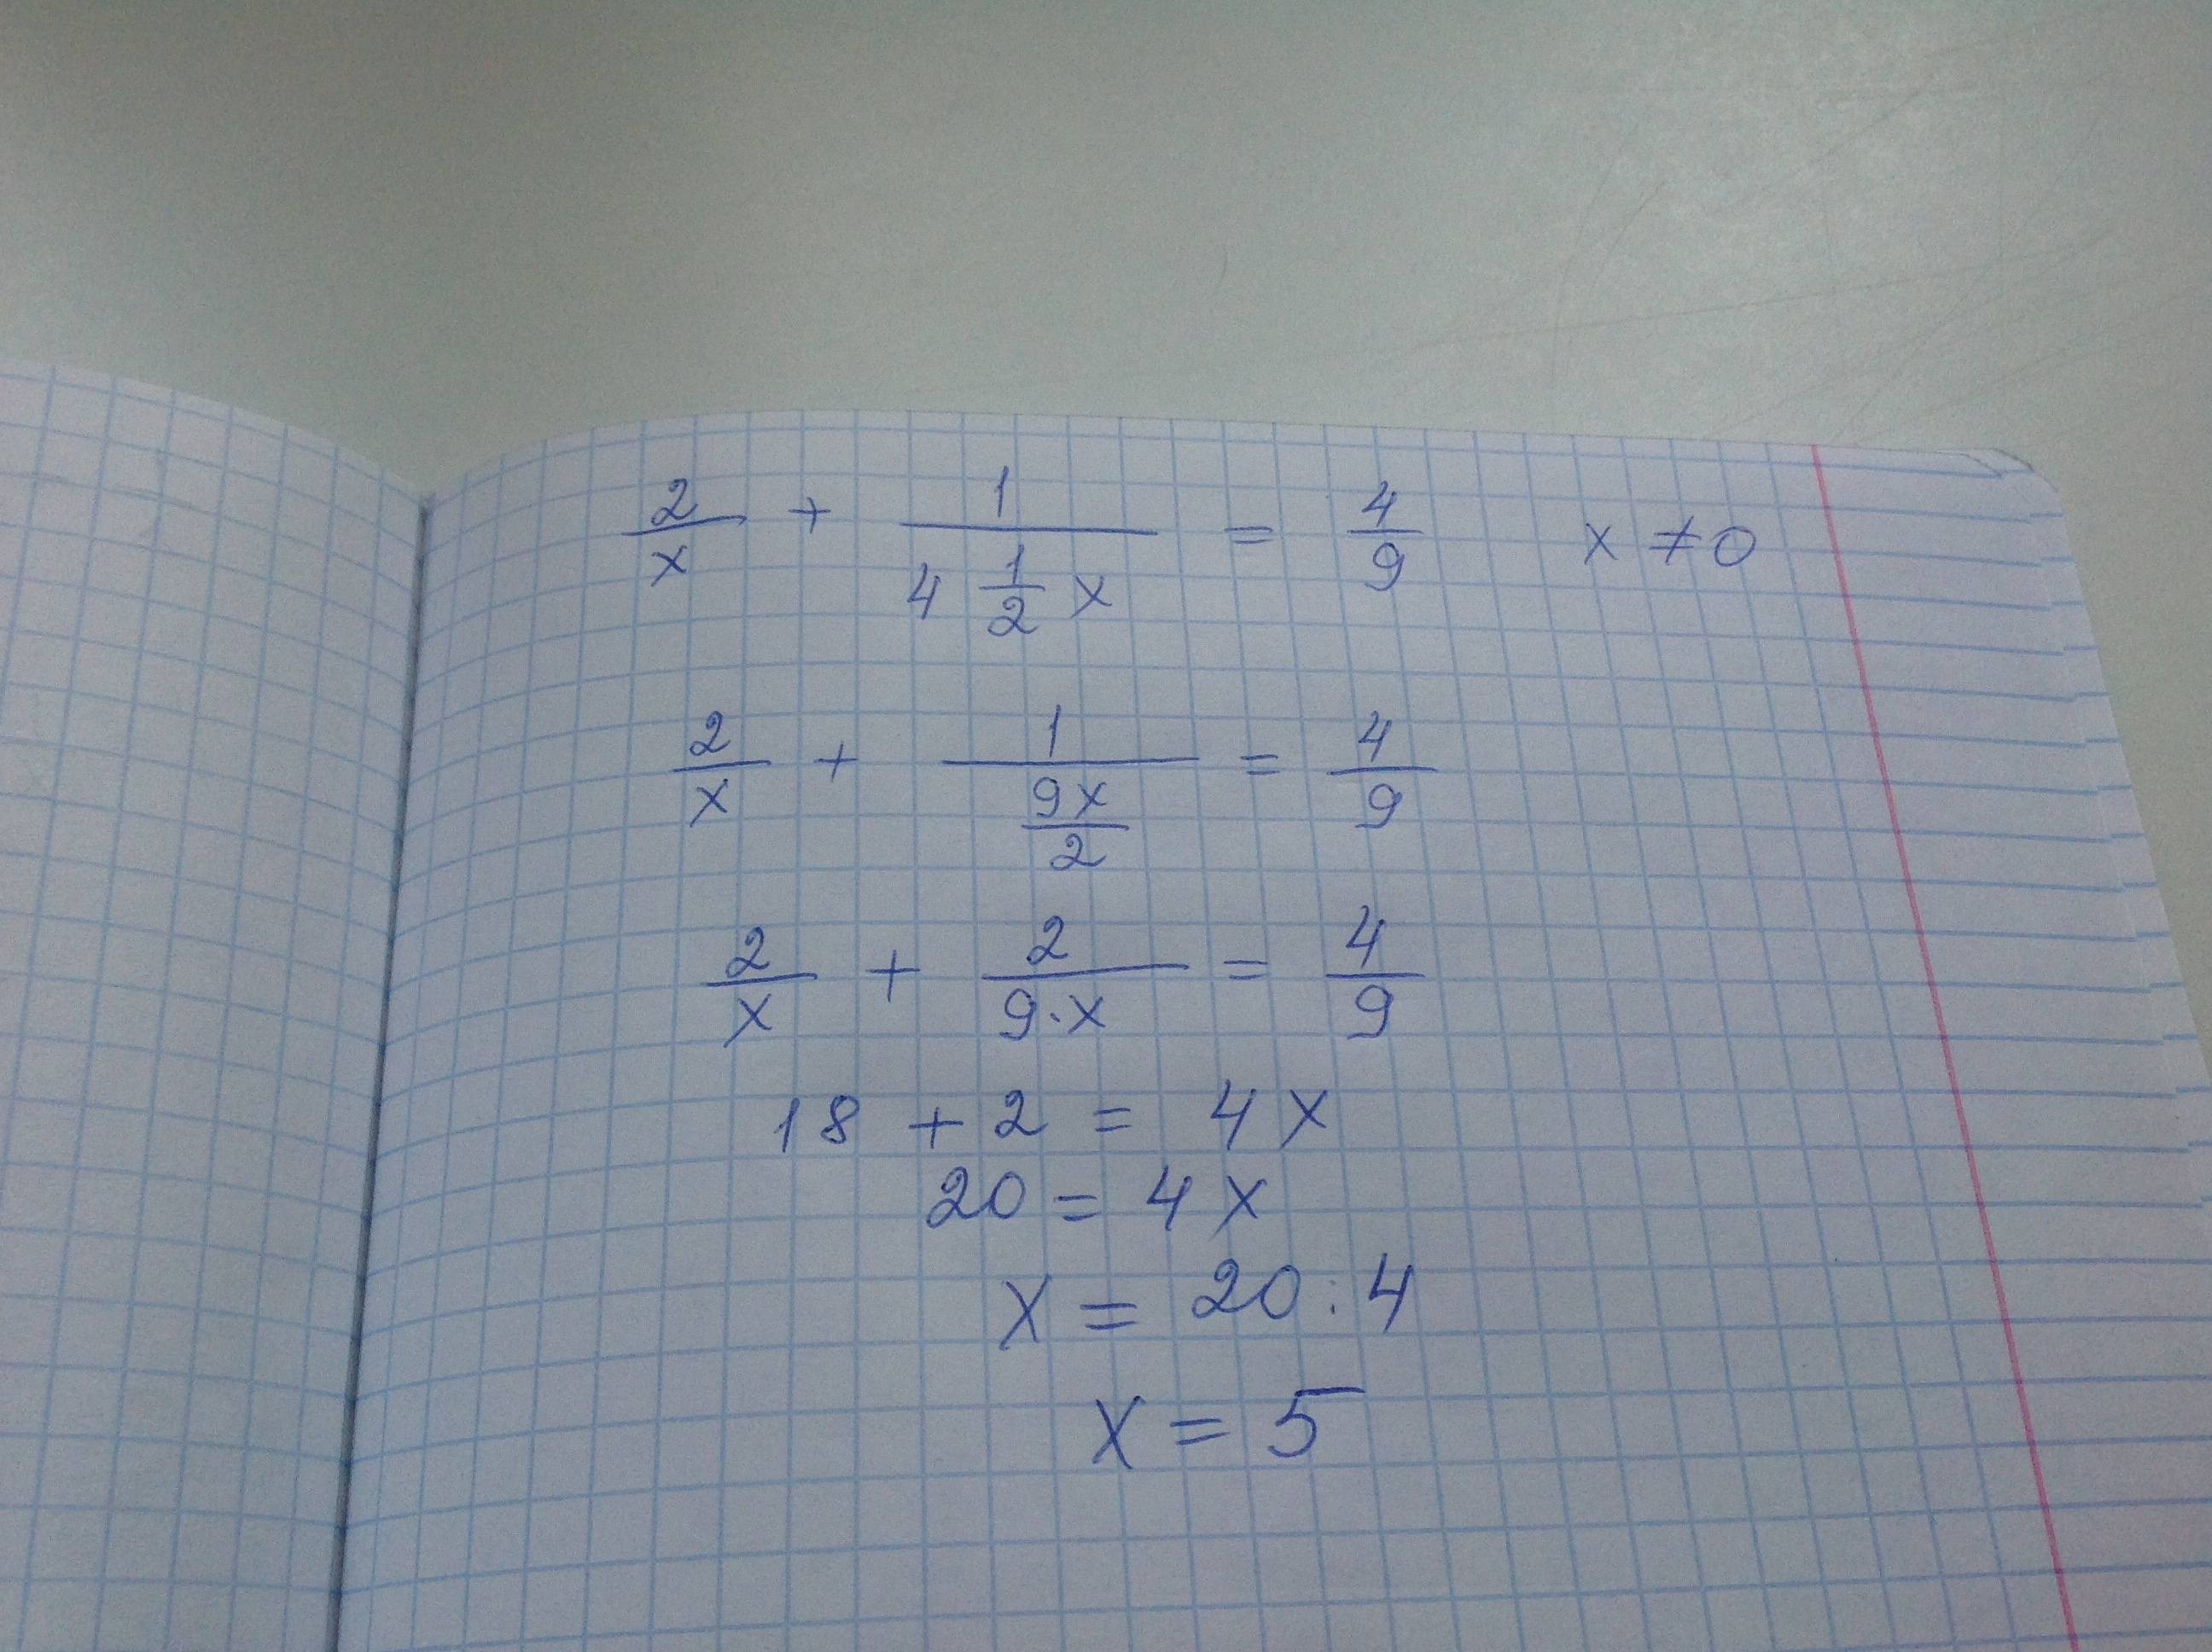 2/x + 1/(4 1/2 x) = 4/9 x ≠ 0
2/x + 1/(9x/2) = 4/9
2/x + 2/(9·x) = 4/9
18 + 2 = 4x
20 = 4x
x = 20 : 4
x = 5